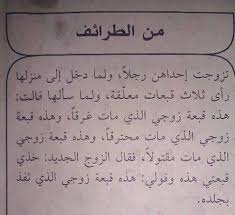 من الطرائف
تزوجت إحداهن رجلاً، ولما دخل إلى منزلها
رأى ثلاث قبعات معلّقة، ولما سألها قالت:
هذه قبعة زوجي الذي مات غرقاً، وهذه قبعة
زوجي الذي مات محترقاً، وهذه قبعة زوجي
الذي مات مقتولاً، فقال الزوج الجديد: خذي
قبعتي هذه وقولي: هذه قبعة زوجي الذي نفذ
بجلده.